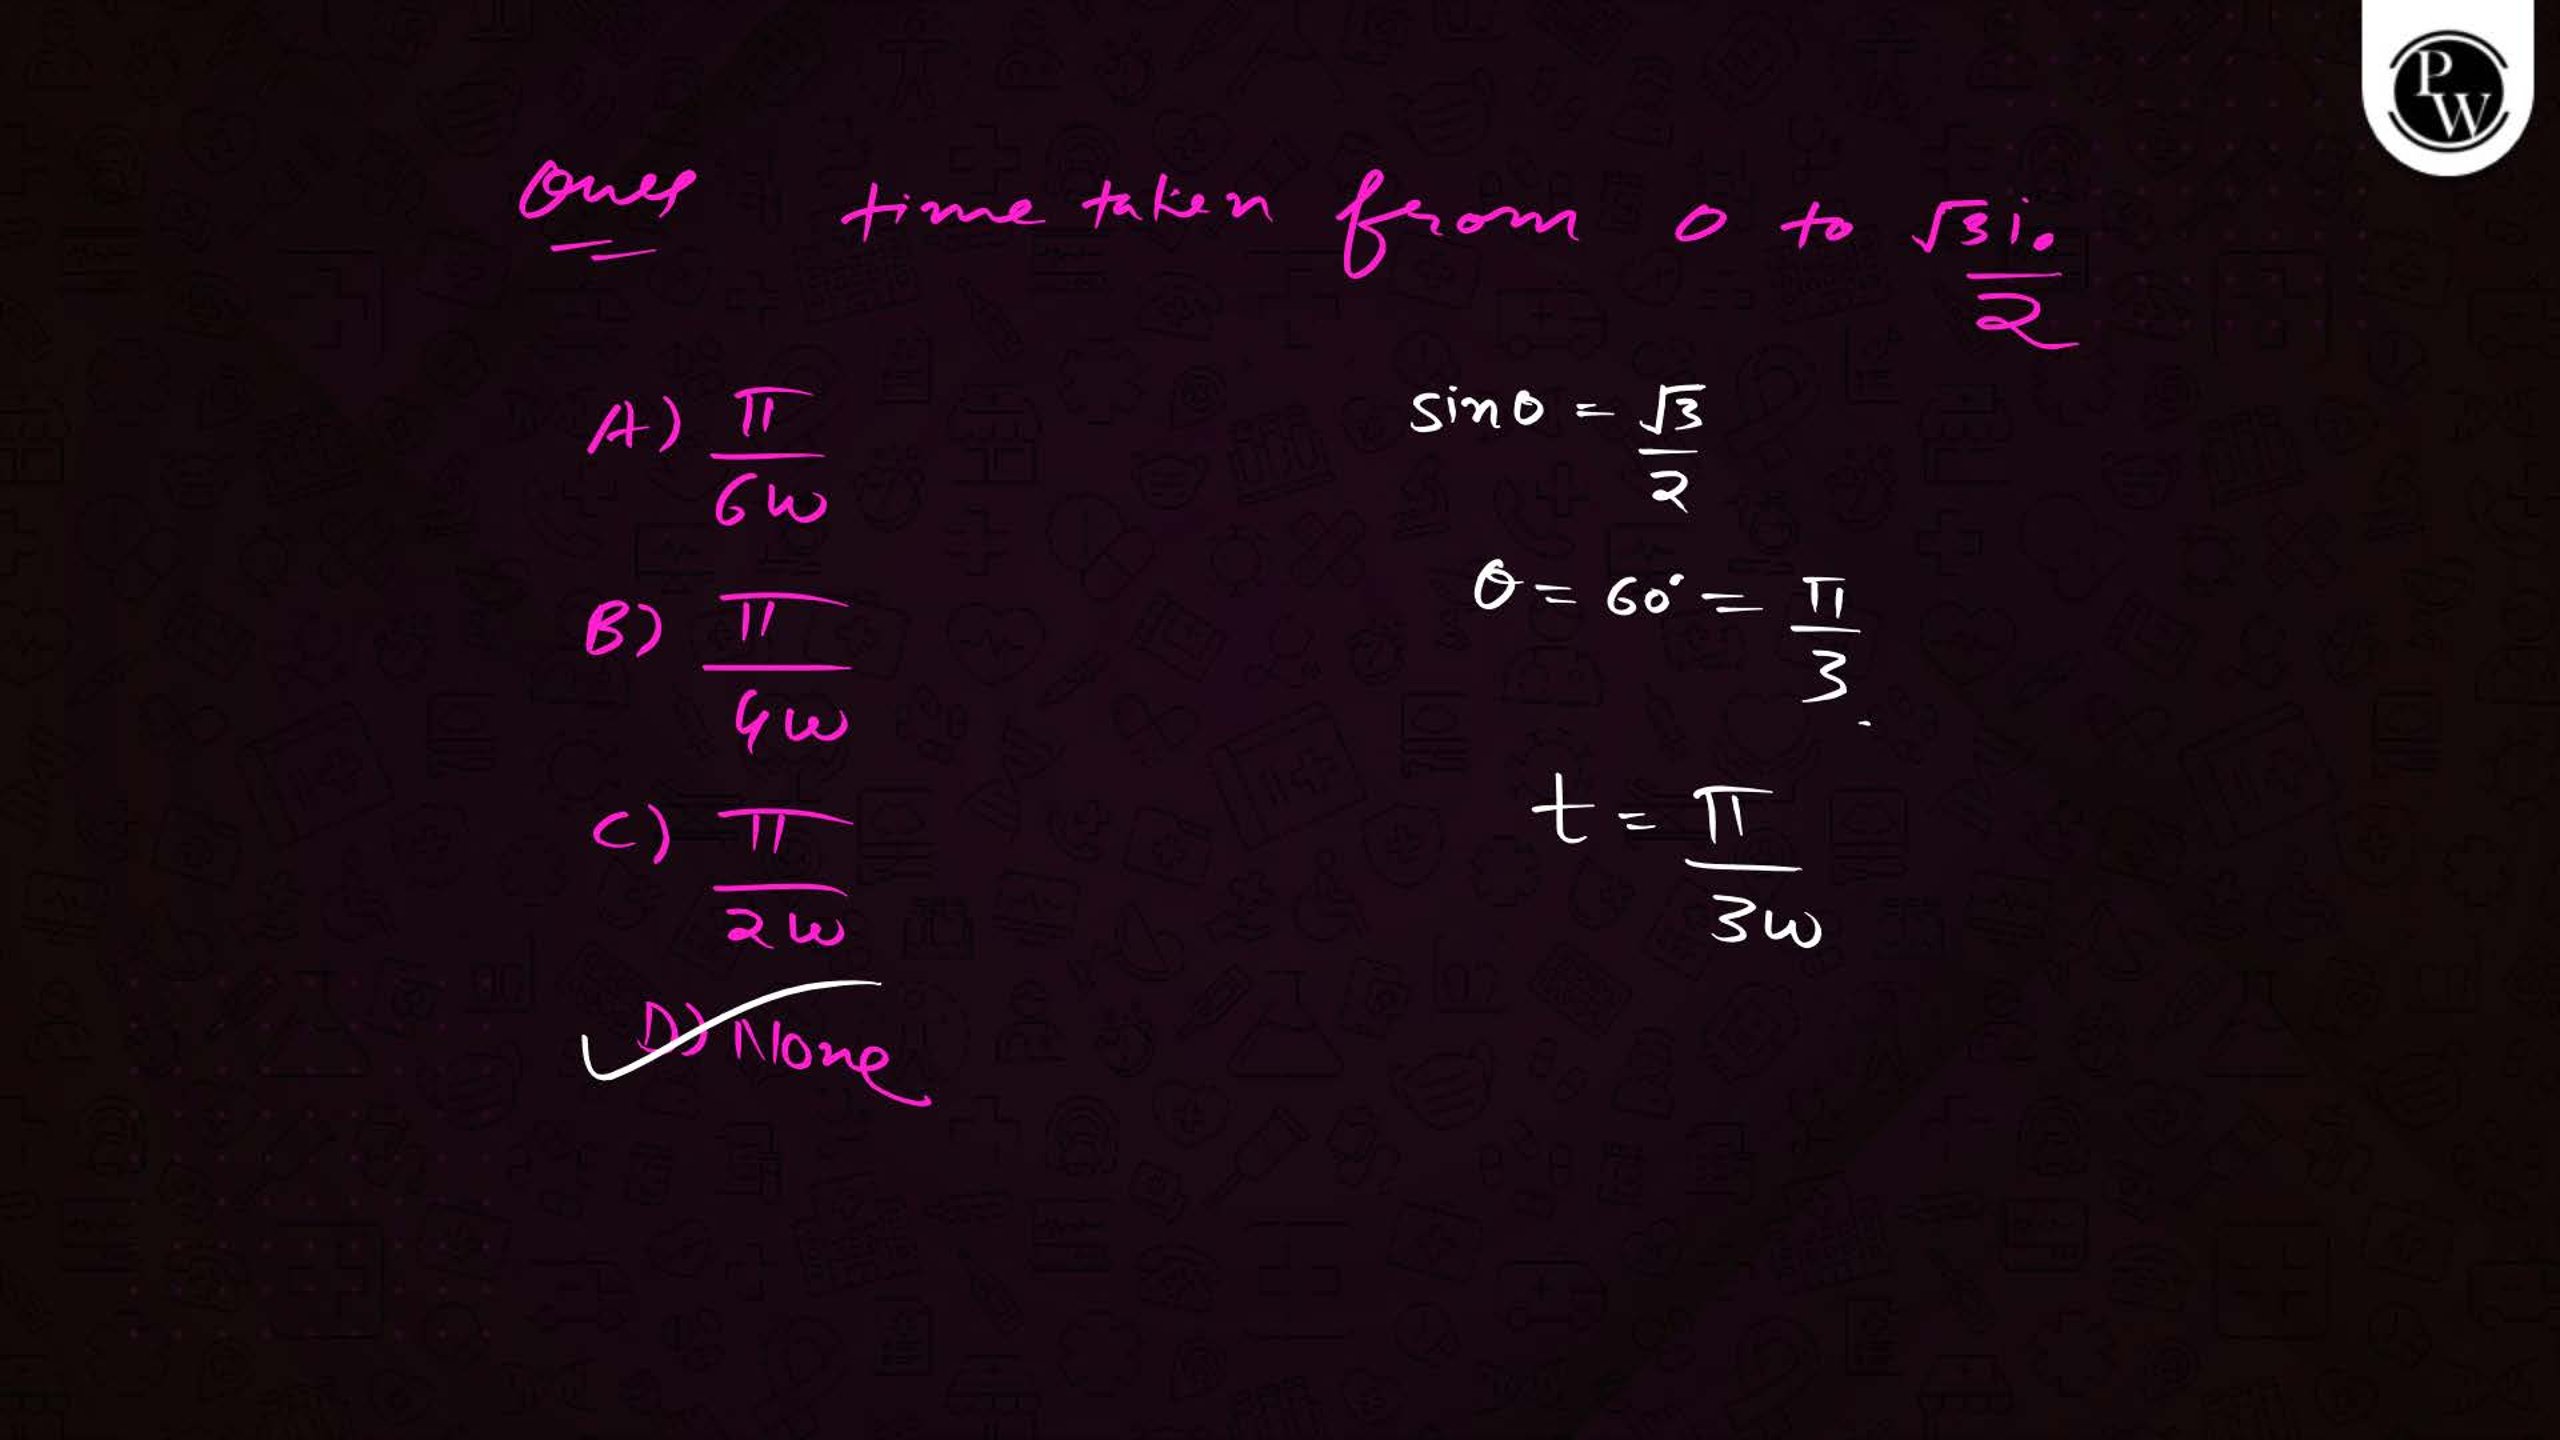 Ques time taken from 0 to √3 i₀/2
A) π/6w
B) π/4w
C) π/2w
D) None
sinθ = √3/2
θ = 60° = π/3
t = π/3w
PW